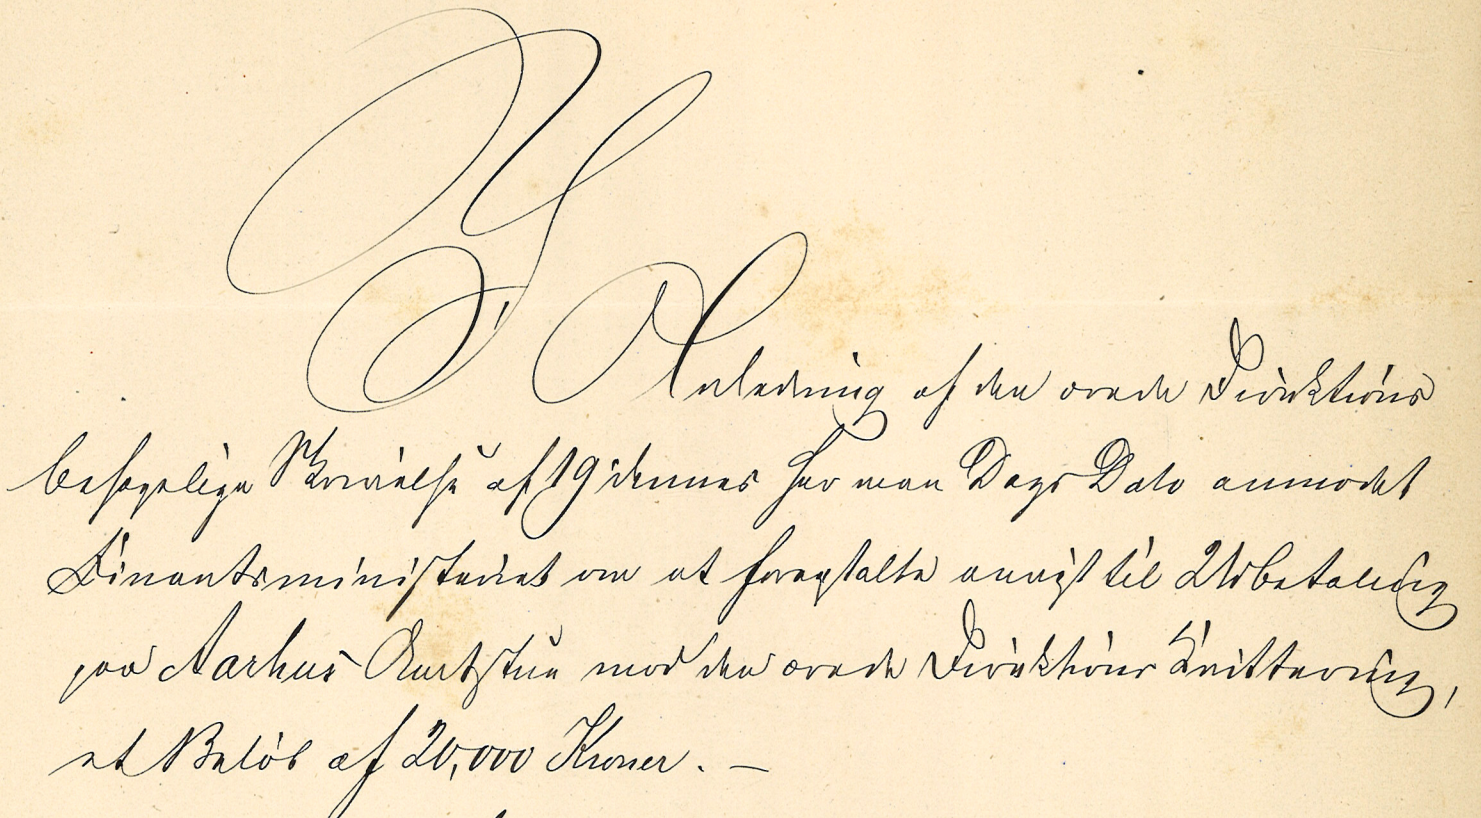 I Anledning af den ærede Direktions
behagelige Skrivelse af 19 dennes har man Dags Dato anmodet
Finantsministeriet om at foranstalte anvist til Udbetaling
paa Aarhus Amtstue mod den ærede Direktions Kvittering,
et Beløb af 20,000 Kroner. —